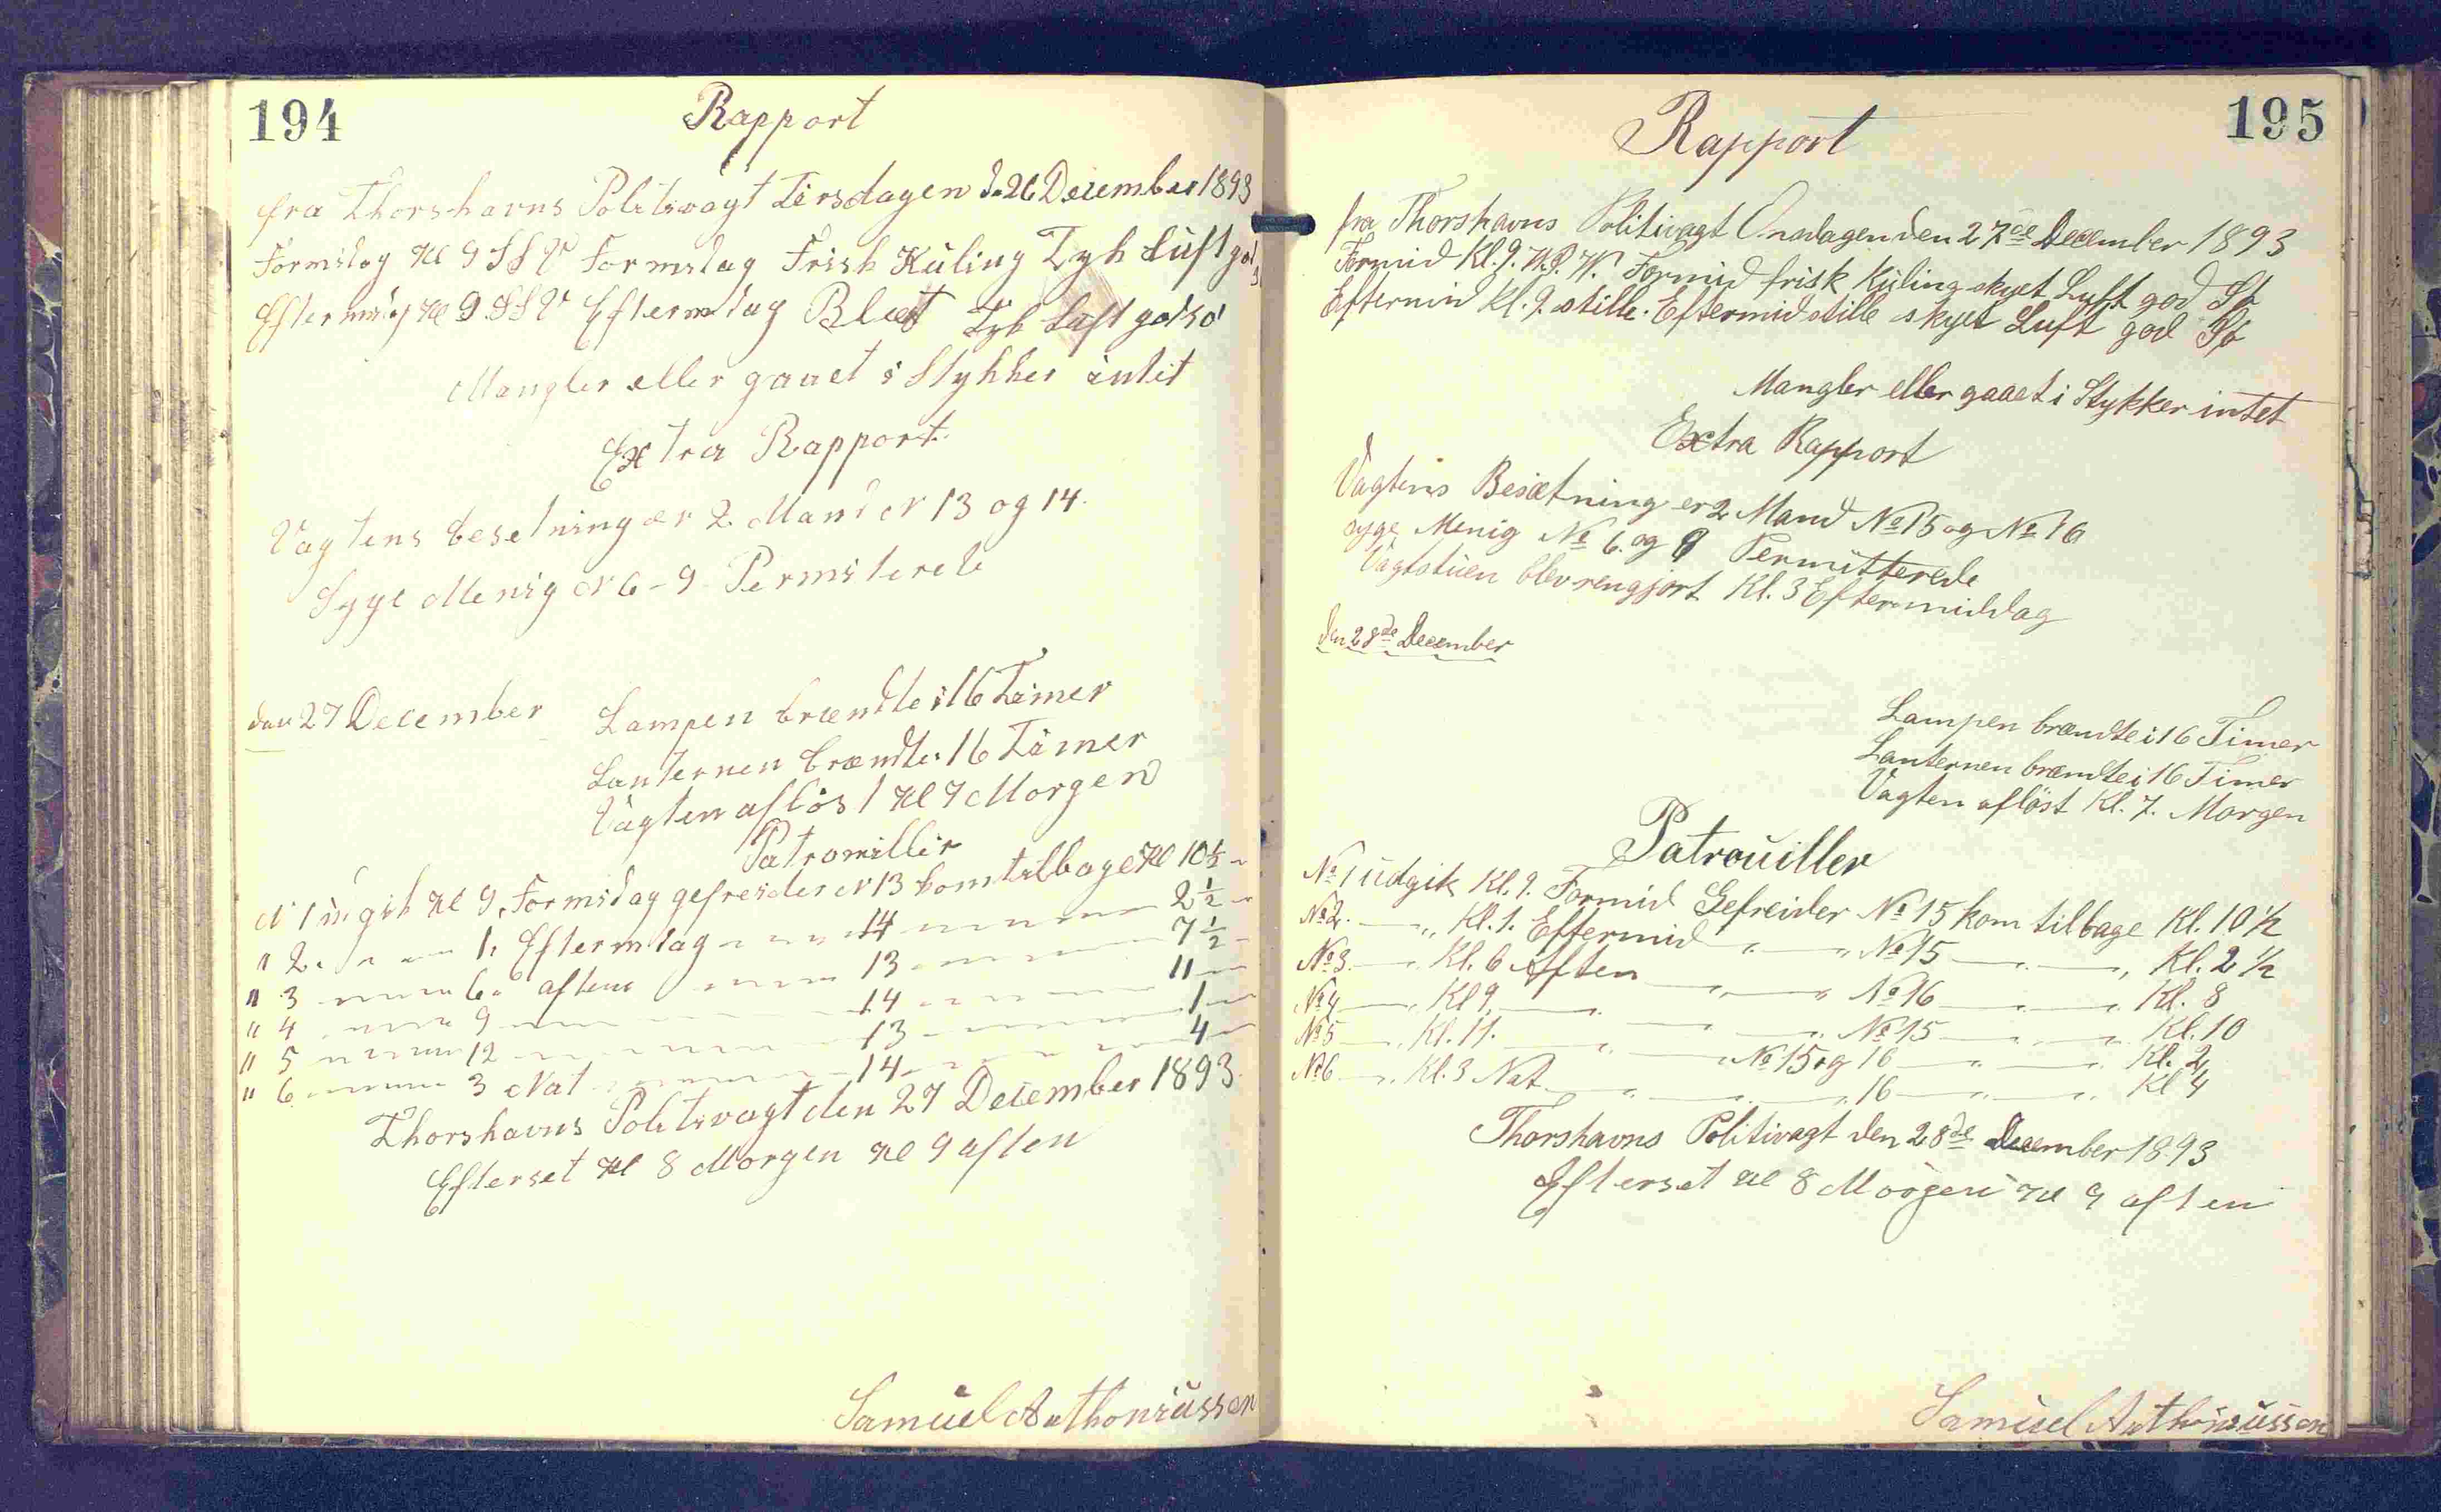 194
Rapport
fra Thorshavns Politivagt Tirsdagen d. 26 December 1893
Formidag Kl 9 SSV Formidag Frisk Küling Tyk Lüft god
Eftermidag Kl 9 SSV Eftermidag Blæst Tyk Lüft god so
Mangler eller gaaet i Stykker intet
Extra Rapport.
Vagtens besetning er 2 Mand N 13 og 14.
Syge Menig N 6 - 9 Permiterede
den 27 December
Lampen brændte i 16 Timer
Lanternen brændte i 16 Timer
Vagten aflöst Kl 7 Morgen
Patrouiller
N 1 üdgik Kl 9. Formidag gefreider N 13 kom tilbage Kl 10 ½
" 2. 1. Eftermidag 14 2 ½
" 3 6 aften 13 7 ½
" 4 9 14 11
" 5 12 13 1
" 6 3 Nat 14 4
Thorshavns Politivagt den 27 December 1893.
Efterset Kl 8 Morgen Kl 9 aften
Samüel Anthoniüssen
195
Rapport
fra Thorshavns Politivagt Onsdagen den 27de December 1893
Formid Kl. 9. Formid frisk Küling skyet Luft god Sö
Eftermid Kl. 9. stille. Eftermid stille skyet Luft god Sö
Mangler eller gaaet i Stykker intet
Extra Rapport
Vagtens Besætning er 2 Mand No 15 og No 16
syge Menig No 6. og 9 Permitterede
Vagtstüen blev rengjort Kl. 3 Eftermiddag
den 28de December
Lampen brændte i 16 Timer
Lanternen brændte i 16 Timer
Vagten aflöst Kl. 7. Morgen
Patroüiller
No 1 üdgik Kl. 9. Formid Gefreider No 15 kom tilbage Kl. 10 ½
No 2. — „ Kl. 1. Eftermid „ — „ No 15 — „ — „ Kl. 2 ½
No 3. — „ Kl. 6 Aften — „ — „ No 16 — „ — „ Kl. 8
No 4 — „ Kl 9. — „ — „ No 15 — „ — „ Kl. 10
No 5 — „ Kl. 11. — „ — „ No 15 og 16 — „ — „ Kl. 2
No 6 — „ Kl. 3 Nat — „ — „ 16 — „ — „ Kl 4
Thorshavns Politivagt den 28de December 1893
Efterset Kl 8 Morgen Kl 9 aften
Samüel Anthoniüssen